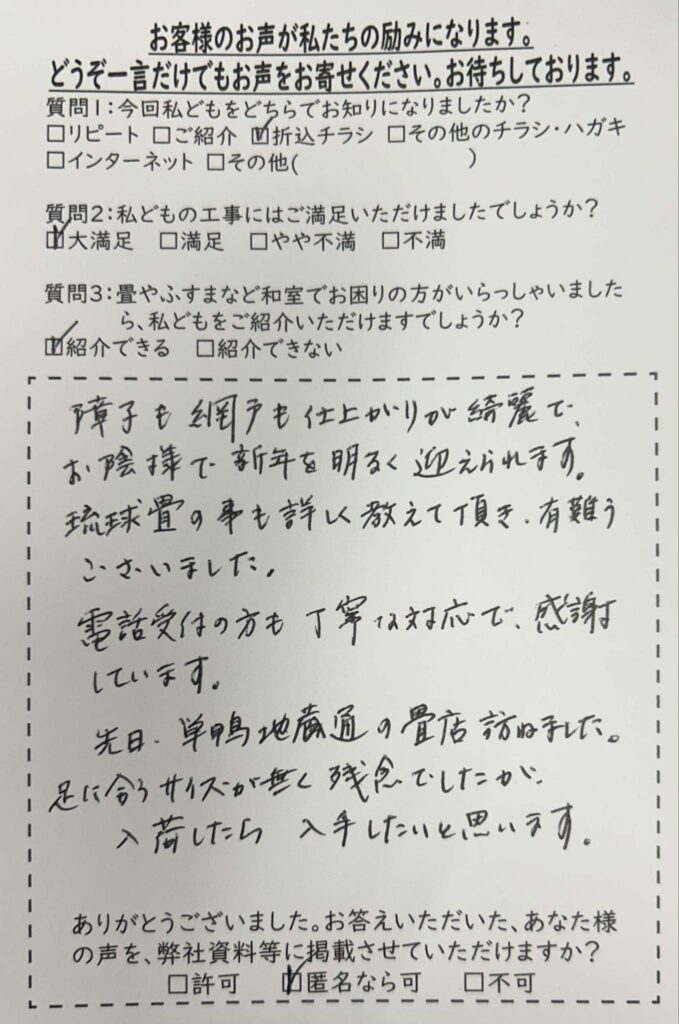 お客様のお声が私たちの励みになります。
どうぞ一言だけでもお声をお寄せください。お待ちしております。
質問1:今回私どもをどちらでお知りになりましたか?
□リピート □ご紹介 ☑折込チラシ □その他のチラシ・ハガキ
□インターネット □その他( )
質問2:私どもの工事にはご満足いただけましたでしょうか?
☑大満足 □満足 □やや不満 □不満
質問3:畳やふすまなど和室でお困りの方がいらっしゃいました
ら、私どもをご紹介いただけますでしょうか?
☑紹介できる □紹介できない
障子も網戸も仕上がりが綺麗で、
お陰様で新年を明るく迎えられます。
琉球畳の事も詳しく教えて頂き、有難う
ございました。
電話受付の方も丁寧な対応で、感謝
しています。
先日、巣鴨地蔵通の畳店訪ねました。
足に合うサイズが無く残念でしたが、
入荷したら 入手したいと思います。
ありがとうございました。お答えいただいた、あなた様
の声を、弊社資料等に掲載させていただけますか?
□許可 ☑匿名なら可 □不可